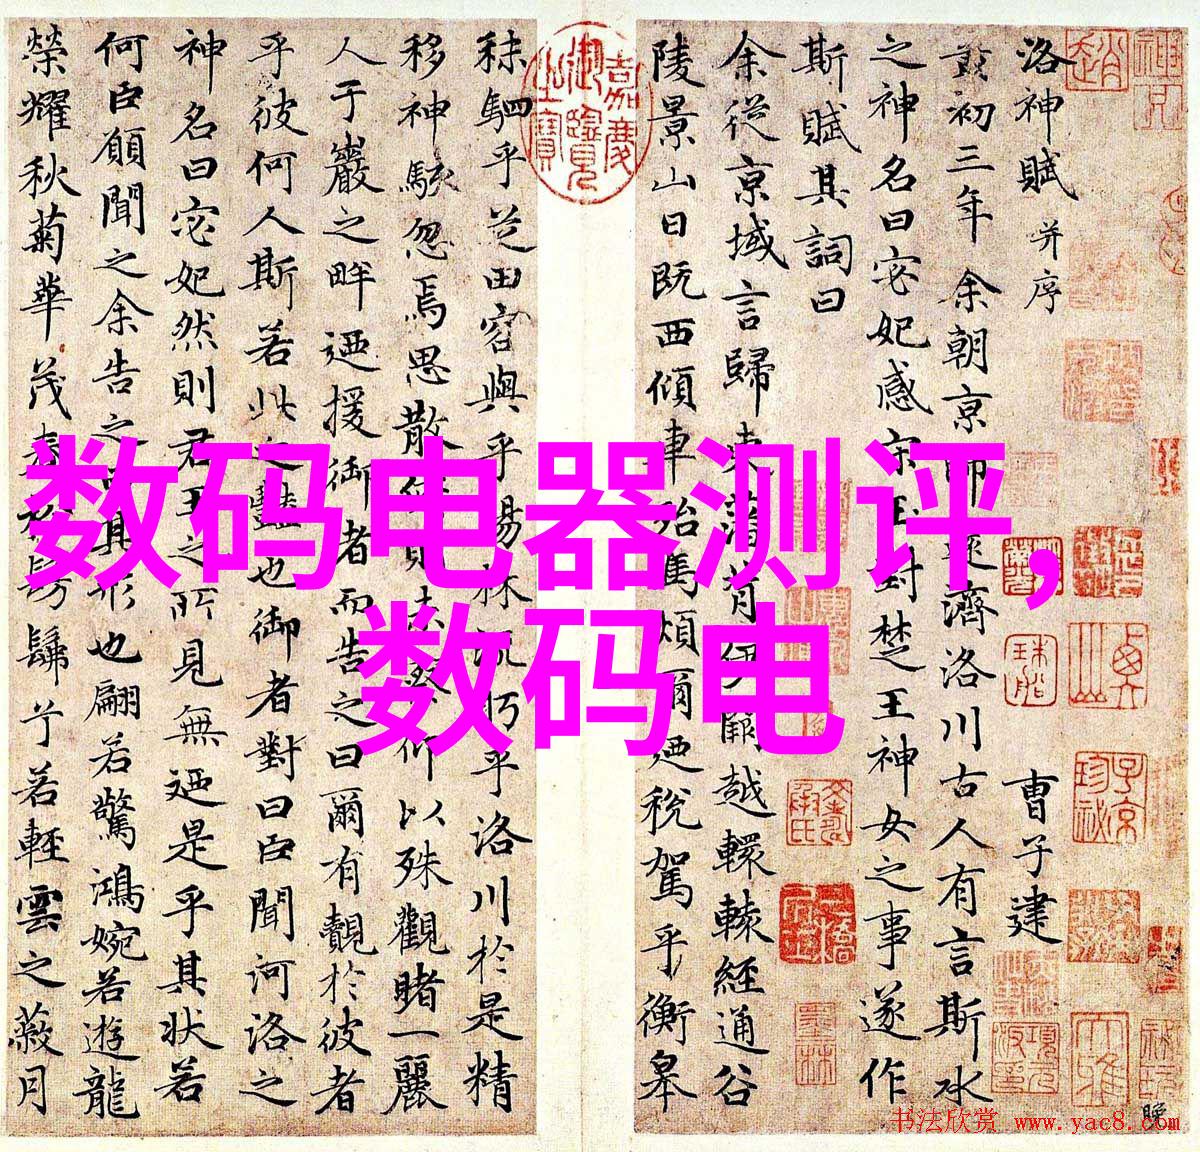 洛神賦 并序
曹子建
黃初三年余朝京師還濟洛川古人有言斯水
之神名曰宓妃感宋玉對楚王神女之事遂作
斯賦其詞曰
余從京域言歸東藩背伊闕越轘轅經通谷
陵景山日既西傾車殆馬煩爾迺稅駕乎蘅皋
秣駟乎芝田容與乎楊林流眄乎洛川於是精
移神駭忽焉思散俯則未察仰以殊觀睹一麗
人于巖之畔迺援御者而告之曰爾有覿於彼者
乎彼何人斯若此之豔也御者對曰臣聞河洛之
神名曰宓妃然則君王之所見無迺是乎其狀若
何臣願聞之余告之曰其形也翩若驚鴻婉若遊龍
榮耀秋菊華茂春松髣髴兮若輕雲之蔽月
嘉慶御覽之寶
数码电器测评,
数码电
晚
书法欣赏 www.yac8.com